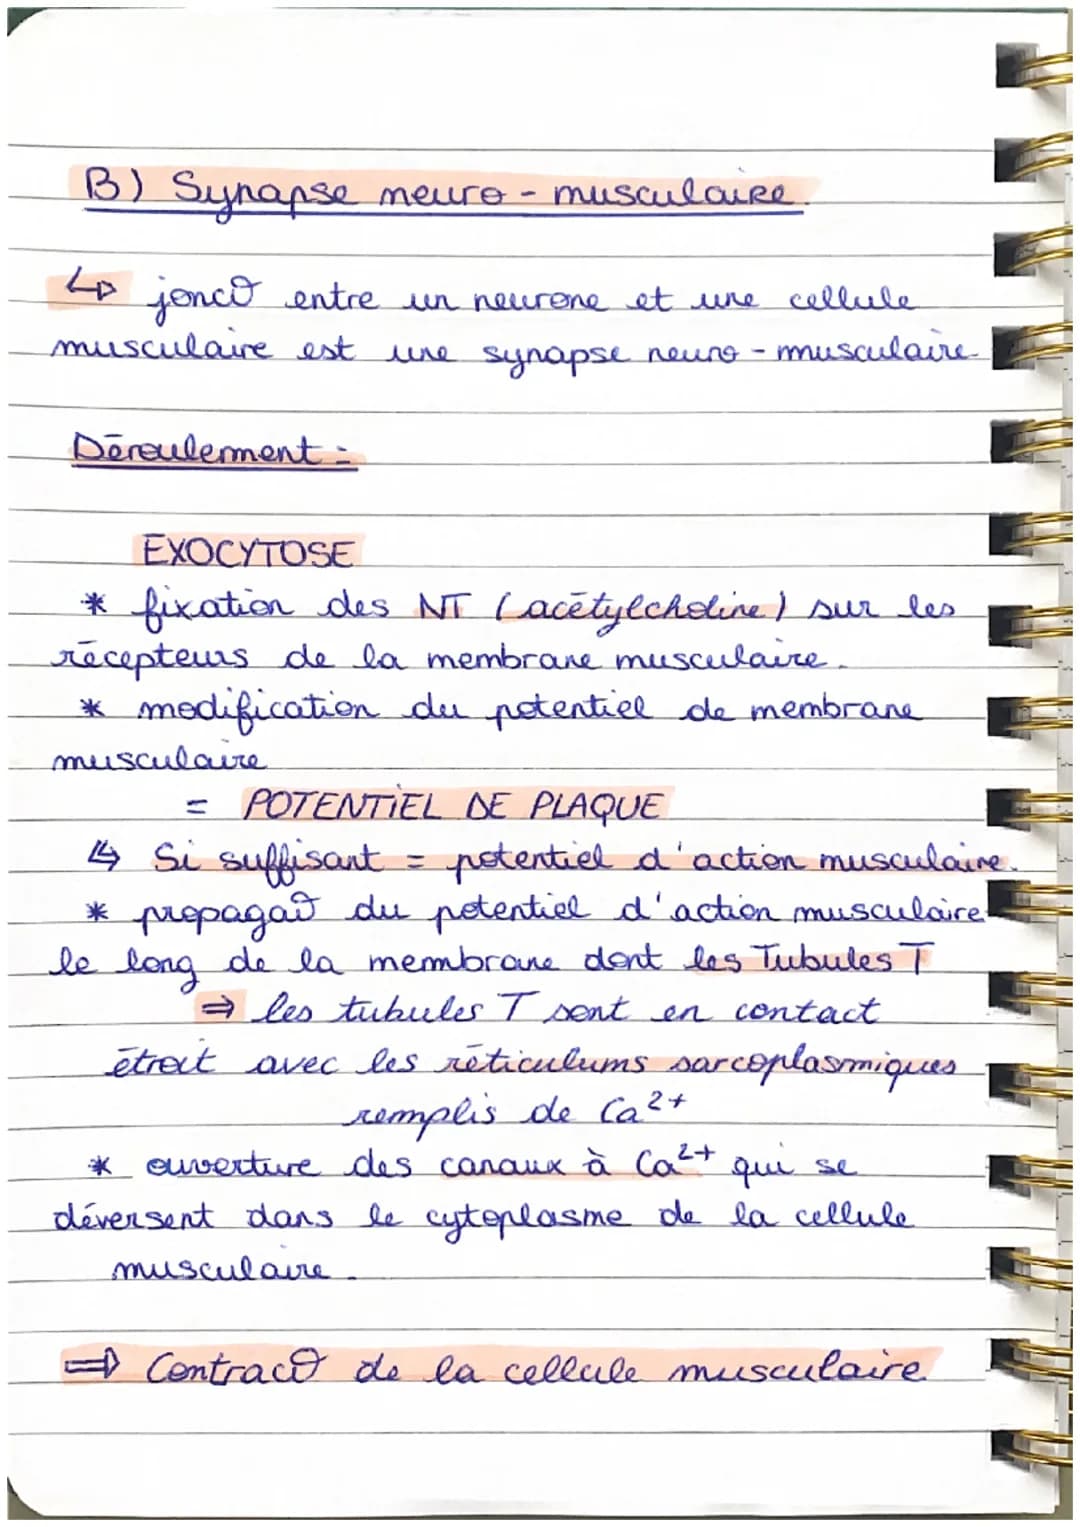 B) Synapse neuro-musculaire.
↳ jonct° entre un neurone et une cellule
musculaire est une synapse neuro-musculaire.
Déroulement :
EXOCYTOSE
* fixation des NT (acétylcholine) sur les
récepteurs de la membrane musculaire.
* modification du potentiel de membrane
musculaire
= POTENTIEL DE PLAQUE
↳ Si suffisant = potentiel d'action musculaire.
* propagat° du potentiel d'action musculaire
le long de la membrane dont les Tubules T
⇒ les tubules T sont en contact
étroit avec les réticulums sarcoplasmiques
remplis de Ca²⁺
* ouverture des canaux à Ca²⁺ qui se
déversent dans le cytoplasme de la cellule
musculaire.
⇒ Contract° de la cellule musculaire